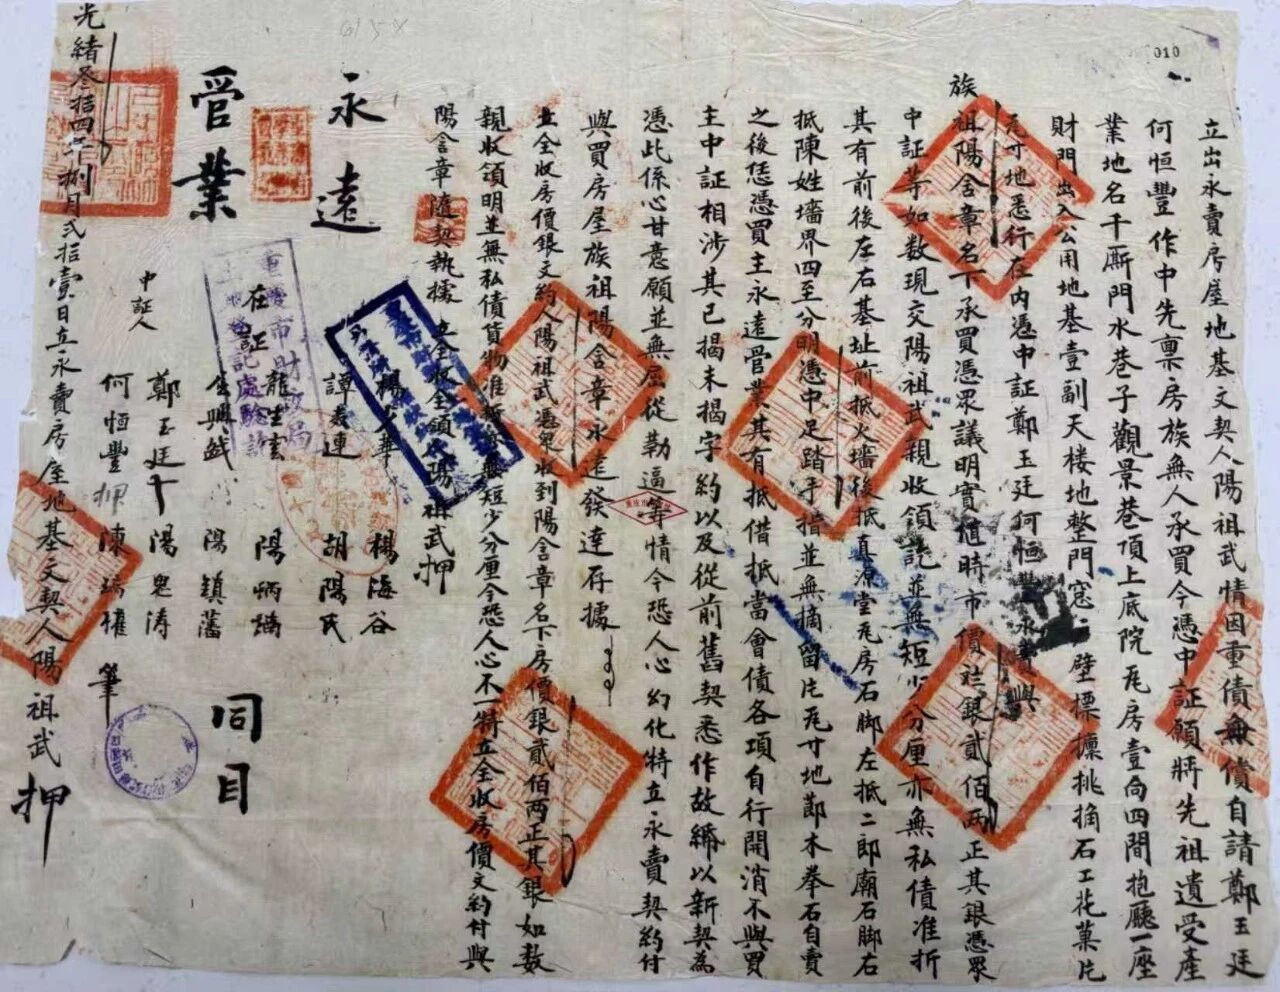 010
立出永賣房屋地基文契人陽祖武情因重債無償自請鄭玉廷
何恒豐作中先禀房族無人承買今憑中証願將先祖遺受產
業地名千厮門水巷子觀景巷頂上底院瓦房壹向四間抱廳一座
財門出入公用地基壹副天楼地整門窓壁標檁挑捔石工花菓片
瓦寸地悉行在內憑中証鄭玉廷何恒豐永賣與
族祖陽含章名下承買憑眾議明實值時市價社銀貳佰两正其銀憑眾
中証等如數現交陽祖武親收領訖並無短少分厘亦無私債准折
其有前後左右基址前抵火墻後抵真源堂瓦房石脚左抵二郎廟石脚右
抵陳姓墻界四至分明憑中足踏手指並無摘留片瓦寸地即木拳石自賣
之後恁憑買主永遠管業其有抵借抵當會債各項自行開消不與買
主中証相涉其已揭未揭字約以及從前舊契悉作故紙以新契為
憑此係心甘意願並無屈從勒逼等情今恐人心幻化特立永賣契約付
與買房屋族祖陽含章永遠發達存據
立全收房價銀文約人陽祖武憑眾收到陽含章名下房價銀貳佰两正其銀如數
親收領明並無私債貨物准折亦無短少分厘今恐人心不一特立全收房價文約付與
陽含章隨契執據 立全收全領陽祖武押
永遠
管業
楊海谷
譚春連 胡陽氏
在証 龍生玄 陽炳璘
陽鎮藩
同目
中証人 鄭玉廷十 陽鬼濤
何恒豐押 陳瑞權 筆
光緒叁拾四年捌月弍拾壹日立永賣房屋地基文契人陽祖武押